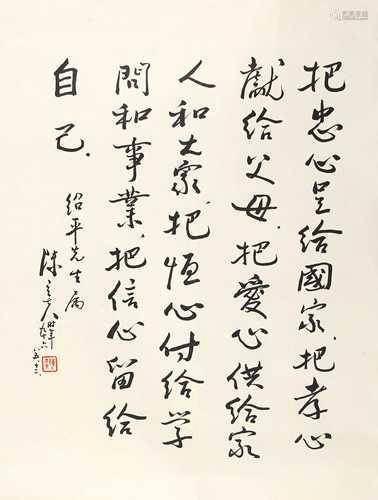 把忠心呈给國家.把孝心
獻给父母.把愛心供给家
人和大家.把恒心付给学
問和事業.把信心留给
自己.
绍平先生属
陳立夫 時年九十六